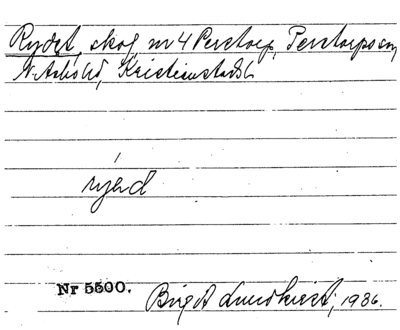 Rydet, skog, nr 4 Perstorp, Perstorps sn,
N. Åsbo hd, Kristianstads l.
ryəd
Nr 5500. Birgit Lundkvist, 1936.